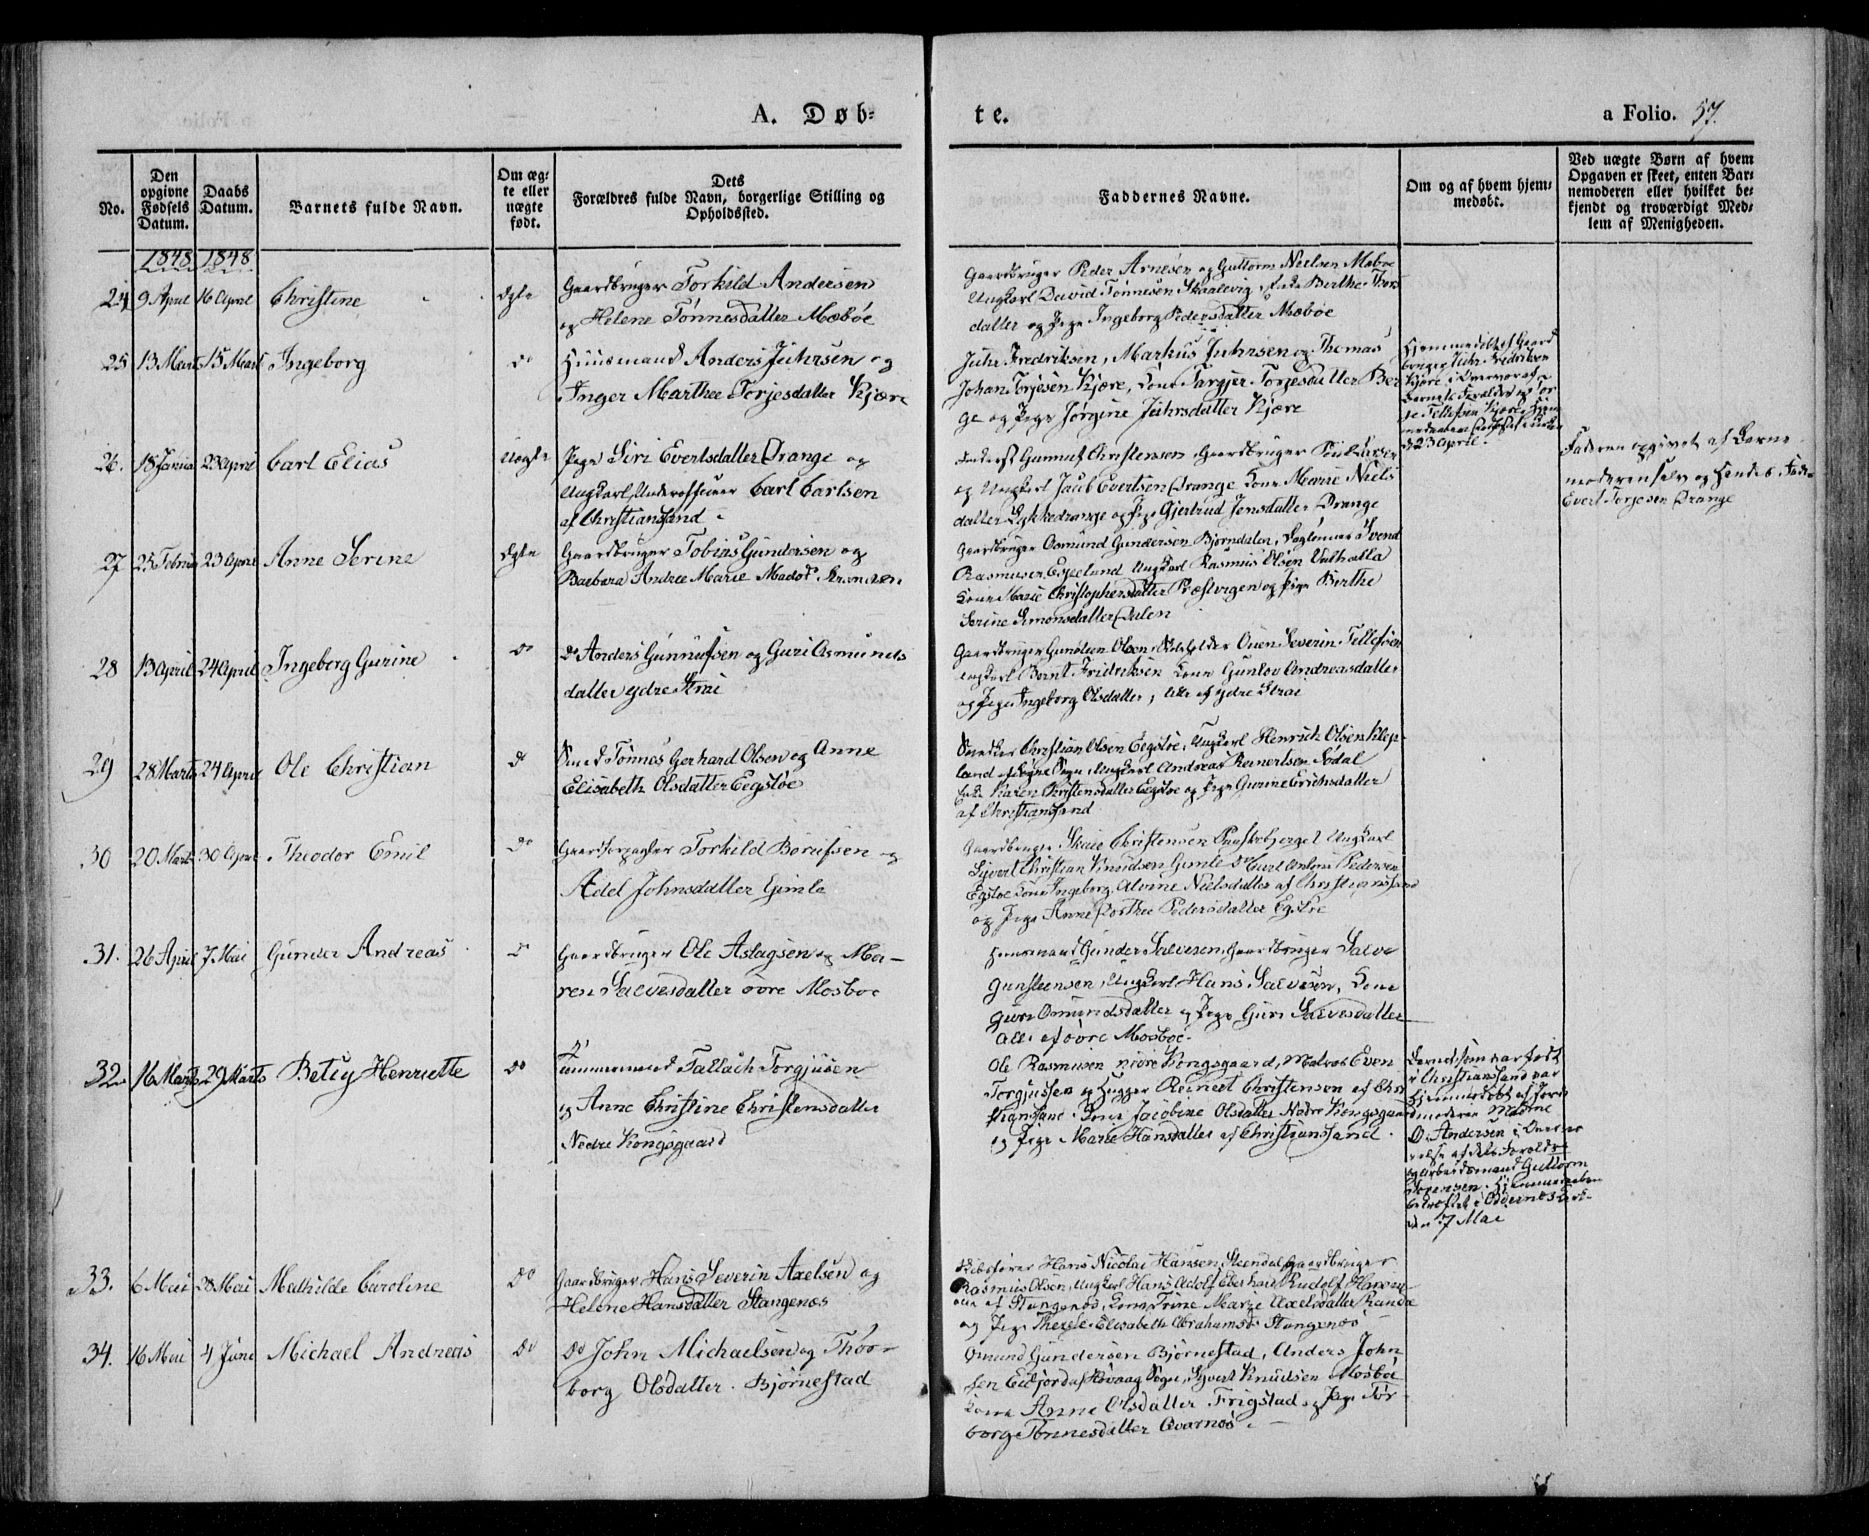 A. Døb-
te.
a Folio. 57.
No.
Den opgivne Fødsels Datum.
Daabs Datum.
Barnets fulde Navn.
Om ægte eller nægte født.
Dets
Forældres fulde Navn, borgerlige Stilling og
Opholdssted.
Faddernes Navne.
Om og af hvem hjem-
medøbt.
Ved uægte Børn af hvem
Opgaven er skeet, enten Bar-
nemoderen eller hvilket be-
kjendt og troværdigt Med-
lem af Menigheden.
1848 1848
24 9 April 16 April Christine Ægte Gaardbruger Torkild Andersen
og Helene Tønnesdatter Mæbøe
Gaardbruger Peder Arnesen og Guttorm Nielsen Mæbøe
Ungkarl David Tønnesen Skaalevig, Berthe Thors
datter og Pige Ingeborg Pedersdatter Mæbøe
25 13 Marts 15 Marts Ingeborg Do Huusmand Anders Juhrsen og
Inger Marthee Torjesdatter Kjære
Juhr Fredriksen, Markus Juhrsen og Thomas
Johan Torjesen Kjære, Kone Targjer Torjesdatter Ber
ge og Pige Jørgine Juhrsdatter Kjære
Hjemmedøbt af Gaard
bruger Juhr Fredriksen
Kjære i Overvær af
Barnets Forældre og Tor
je Tellefsen Kjære
d 23 April.
26. 18 Janua 23 April Carl Elias Uægte Pige Siri Evertsdatter Drange og
Ungkarl Underofficeer Carl Carlsen
af Christiansand
Gunnuf Christensen Gaardbruger
og Ungkarl Jacob Evertsen Drange Kone Marie Niels
datter Lykkedrange og Pige Gjertrud Jensdatter Drange
Faderen opgivet af Barne
moderen selv og hendes Fader
Evert Torjesen Drange
27 25 Februa 23 April Anne Serine Ægte Gaardbruger Tobias Gundersen og
Barbara Andrea Marie Madsd.
Gaardbruger Osmund Gundersen Bjørndalen, Daglønner Svend
Rasmusen Egeland Ungkarl Rasmus Olsen Valhalla
Kone Marie Christophersdatter Præstvigen og Pige Berthe
Serine Simonsdatter Dalen
28 13 April 24 April Ingeborg Gurine Do Do Anders Gunnufsen og Guri Osmunds
datter ydre Strai
Gaardbruger Gunsteen Olsen, Ouen Severin Tellefsen
Ungkarl Bernt Fridriksen Kone Gunlov Andreasdatter
og Pige Ingeborg Olsdatter, alle af ydre Strai
29 28 Marts 24 April Ole Christian Do Smed Tønnes Gerhard Olsen og Anne
Elisabeth Olsdatter Eegstøe
Snedker Christian Olsen Eegstøe, Ungkarl Henrich Olsen Klep-
land af Søgne Sogn, Ungkarl Andreas Reinertsen Sødal
Karen Christensdatter Eegstøe og Pige Gurine Erichsdatter
af Christiansand
30 20 Marts 30 April Theodor Emil Do Gaardforpagter Torkild Borufsen og
Adel Johnsdatter Gimle
Gaardbruger Christensen Ungkarl
Syvert Christian Knudsen Gimle Do Curt Anton Pedersen
Egstøe Kone Ingeborg Alvine Nielsdatter af Christianssand
og Pige Anne Dorthee Pedersdatter Egstøe
31. 26 April 7 Mai Gunder Andreas Do Gaardbruger Ole Aslagsen og Ma-
ren Salvesdatter øvre Mosbøe
Huusmand Gunder Salvesen, Gaardbruger Salve
Gunsteensen, Ungkarl Hans Salvesen, Kone
Guri Osmundsdatter og Pige Guri Salvesdatter
Alle af øvre Mosbøe.
32. 16 Marts 29 Marts Betzy Henriette Do Tømmermand Tallach Torgjusen
og Anne Christine Christensdatter
Nedre Kongsgaard
Ole Rasmusen Kongsgaard, Matros Even
Torgjussen og Hugger Reinert Christensen af Chri
stiansand. Kone Jacobine Olsdatter Nedre Kongsgaard
og Pige Marie Hansdatter af Christiansand.
Barnet, som var født
i Christiansand var
hjemmedøbt af Jord
moderen Madme
O. Andersen i Overvæ
relse af dets Forældre
og Arbeidsmand Guttorm
Hjemmedaaben
bekræftet i Oddernes Kirke
den 7 Mai
33. 6 Mai 28 Mai Mathilde Caroline Do Gaardbruger Hans Severin Axelsen og
Helene Hansdatter Stangenæs
Skibsfører Hans Nicolai Hansen, Gaardbruger
Rasmus Olsen, Ungkarl Hans Adolf Eberhard Rudolf Herm
an af Stangenæs, Kone Trine Marie Axelsdatter Randøe
og Pige Therese Elisabeth Abrahamsd. Stangenæs
34. 16 Mai 4 Juni Michael Andreas Do Do John Michaelsen og Thor-
borg Olsdatter. Bjørnestad
Osmund Gundersen Bjørnestad, Anders John
sen Eidjord af Høvaag Sogn, Syvert Knudsen Mosbøe
Kone Anne Olsdatter Frigstad og Pige Tor
borg Tønnesdatter Qvarnæs.